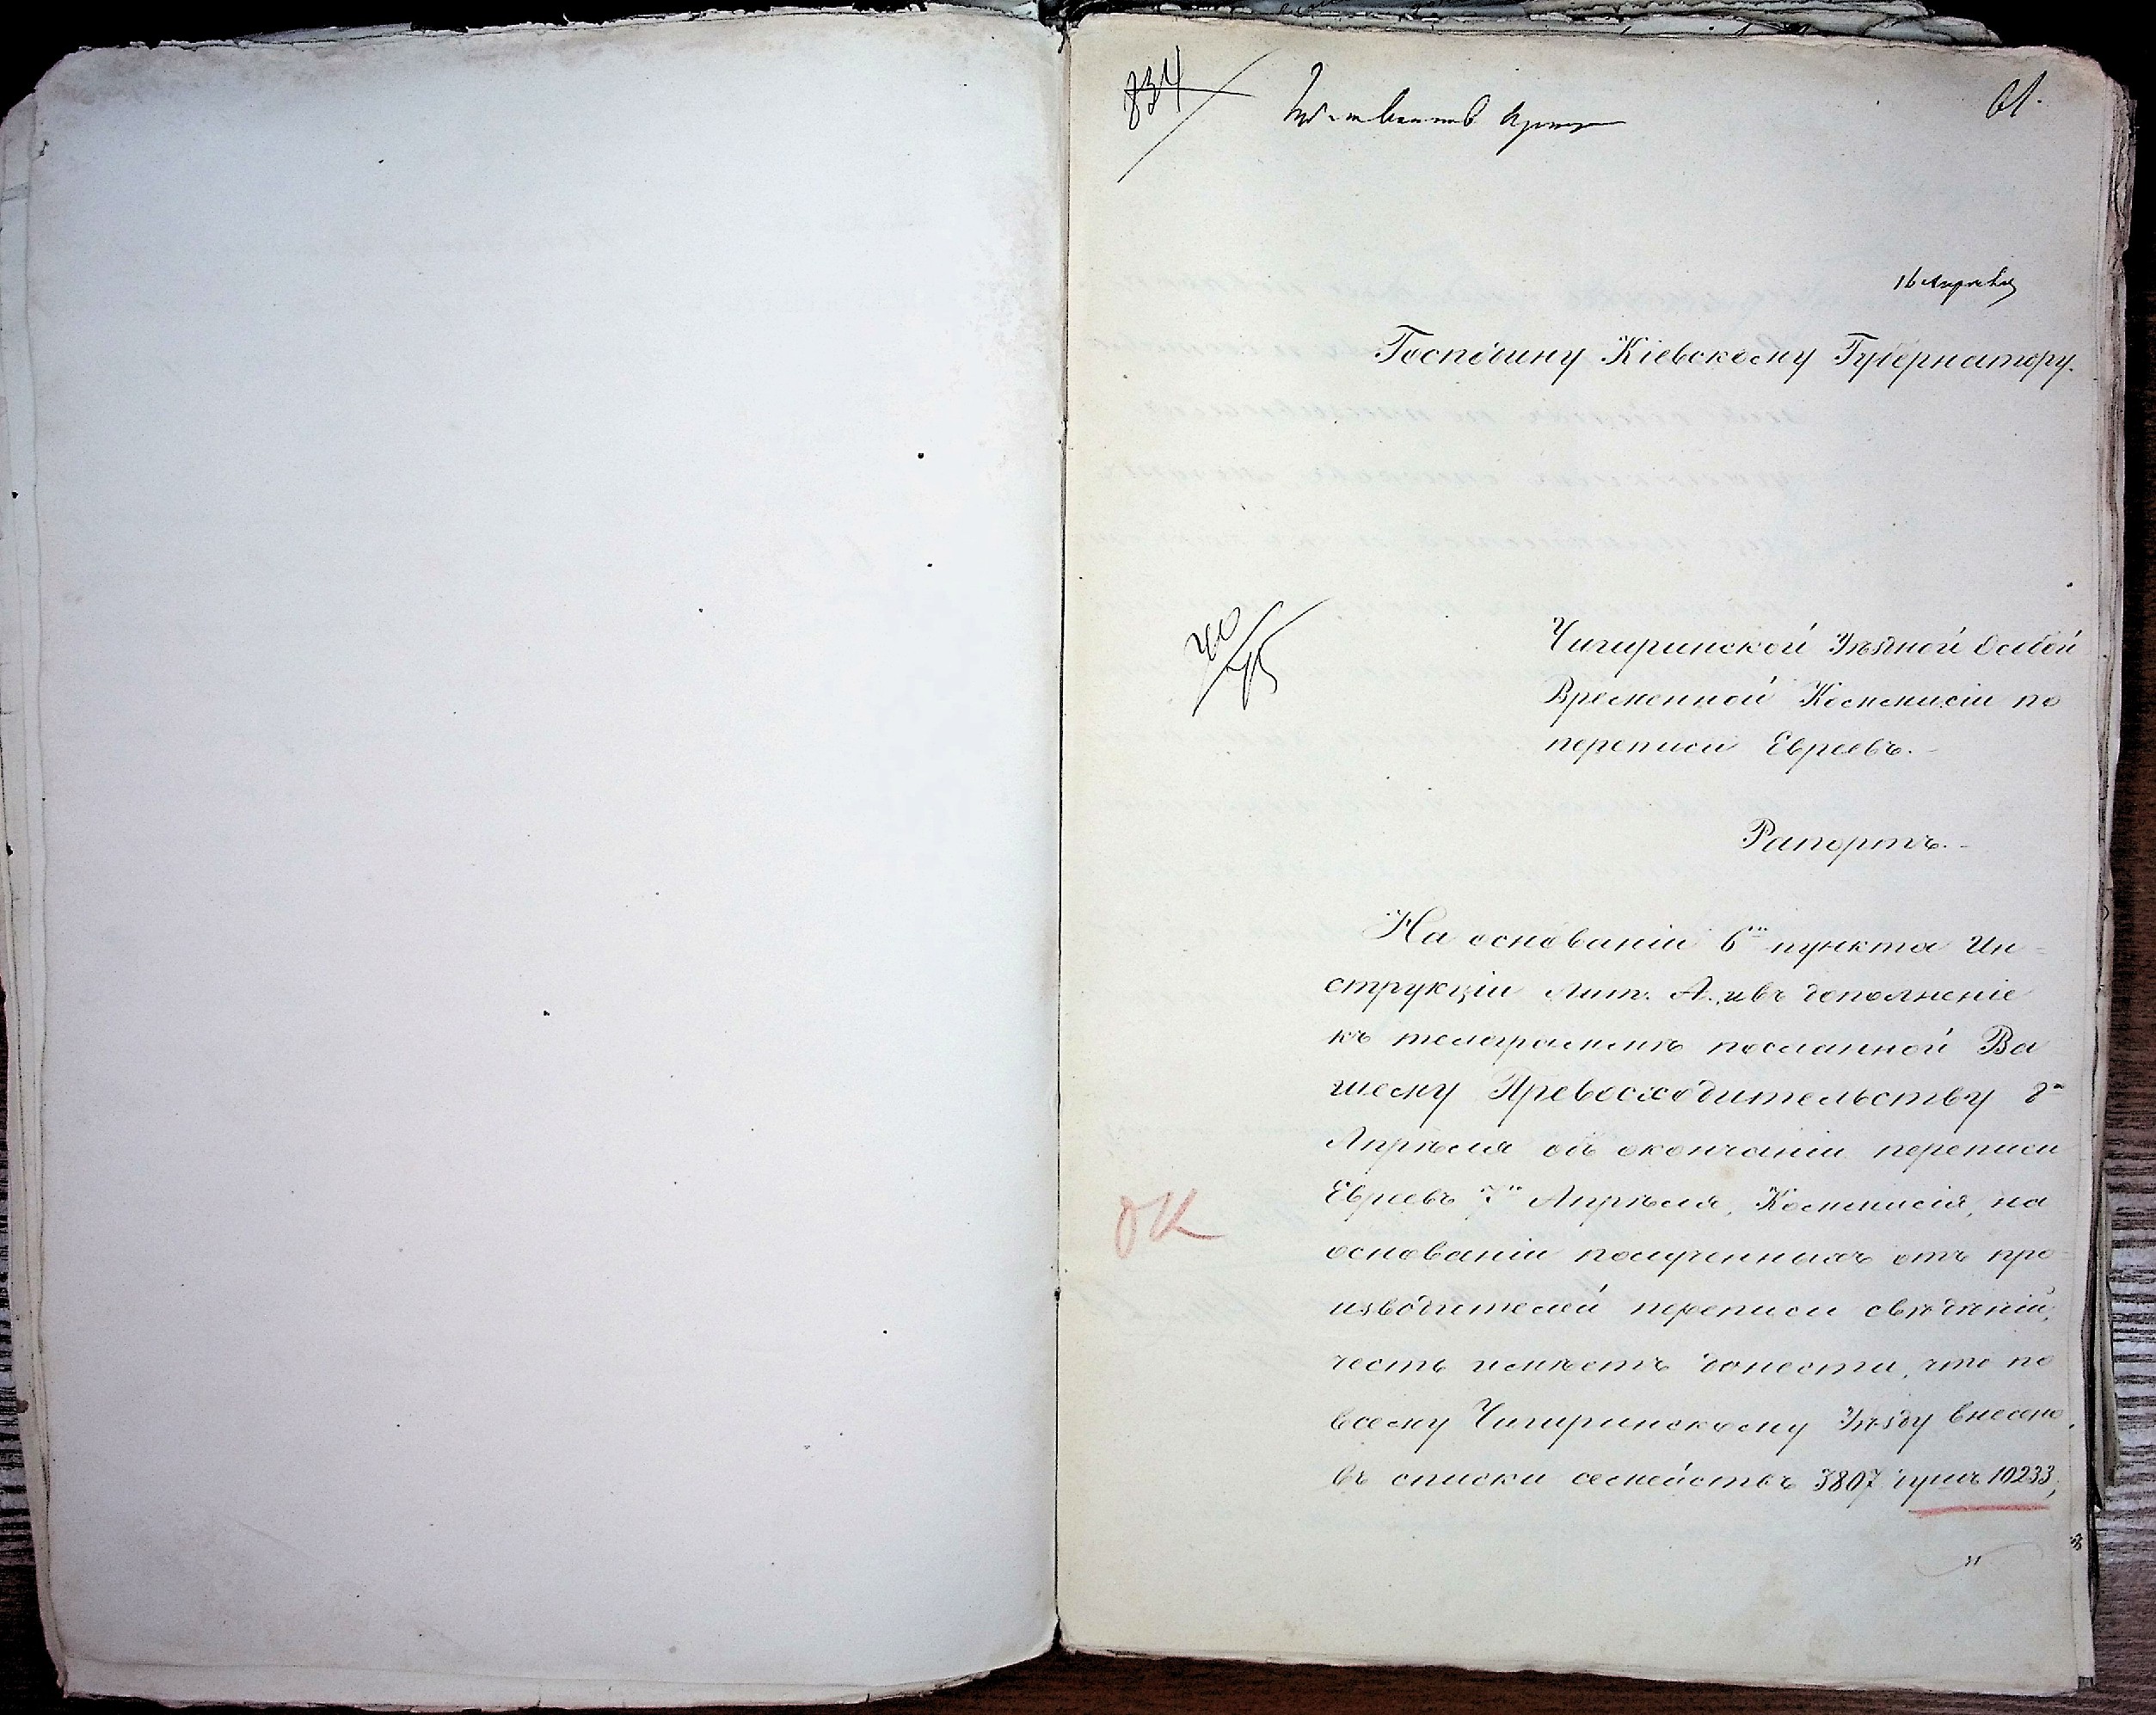 834
61.
16 Апрѣля
Господину Кіевскому Губернатору.
40/75
Чигиринской Уѣздной Особой
Временной Коммисіи по
переписи Евреевъ.-
Рапортъ.-
На основаніи 6го пункта Ин-
струкціи лит. А. и въ дополненіе
къ телеграммѣ посланной Ва
шему Превосходительству 8го
Апрѣля объ окончаніи переписи
Евреевъ 7го Апрѣля, Коммисія, на
основаніи полученныхъ отъ про-
изводителей переписи свѣдѣній,
честь имѣетъ донести, что по
всему Чигиринскому Уѣзду внесено,
въ списки семействъ 3807 душъ 10233,
и